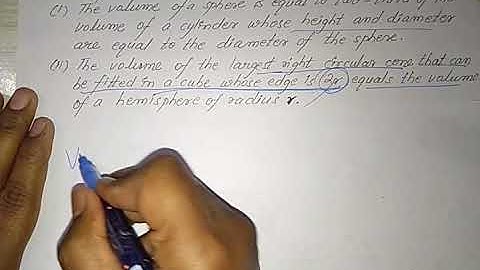 (I) The volume of a sphere is equal to two-third of the
volume of a cylinder whose height and diameter
are equal to the diameter of the sphere.
(II) The volume of the largest right circular cone that can
be fitted in a cube whose edge is 2r equals the volume
of a hemisphere of radius r.
V